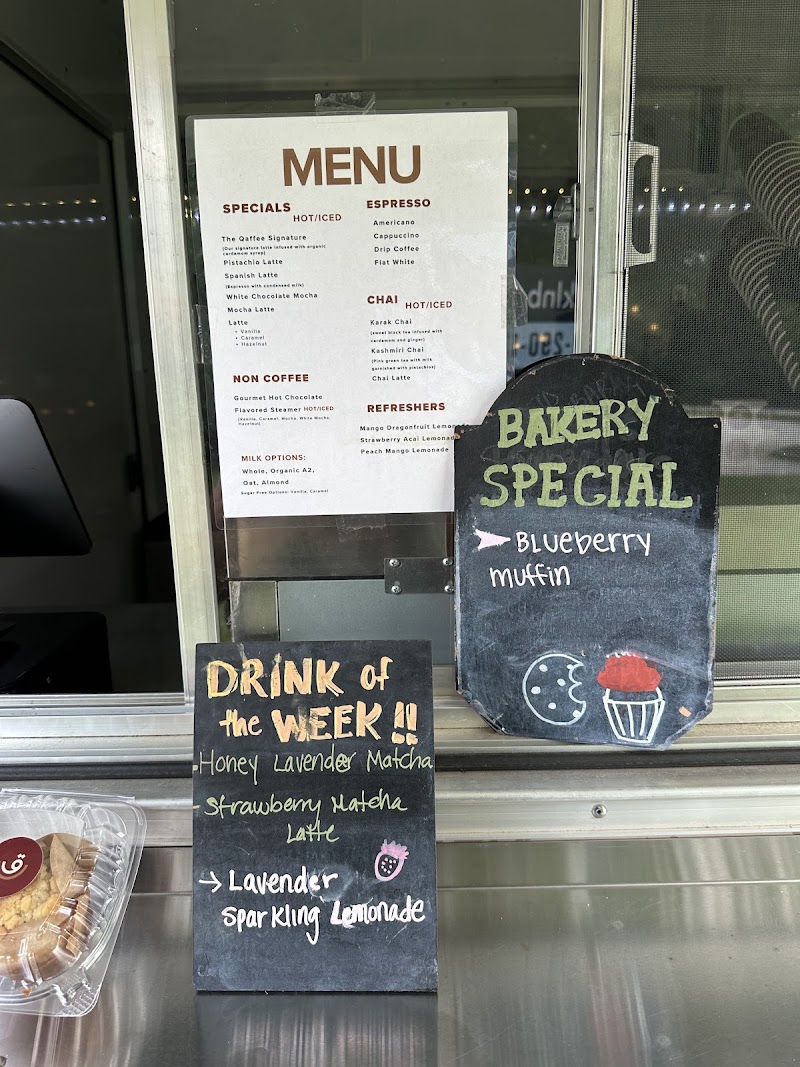 MENU
SPECIALS
HOT/ICED
The Qaffee Signature
(Our signature latte infused with organic
cardamom syrup)
Pistachio Latte
Spanish Latte
(Espresso with condensed milk)
White Chocolate Mocha
Mocha Latte
Latte
• Vanilla
• Caramel
• Hazelnut
NON COFFEE
Gourmet Hot Chocolate
Flavored Steamer HOT/ICED
(Vanilla, Caramel, Mocha, White Mocha,
Hazelnut)
MILK OPTIONS:
Whole, Organic A2,
Oat, Almond
Sugar Free Options: Vanilla, Caramel
ESPRESSO
Americano
Cappuccino
Drip Coffee
Flat White
CHAI HOT/ICED
Karak Chai
(sweet black tea infused with
cardamom and ginger)
Kashmiri Chai
(Pink green tea with milk
garnished with pistachios)
Chai Latte
REFRESHERS
Mango Dragonfruit Lemon
Strawberry Acai Lemonad
Peach Mango Lemonade
BAKERY
SPECIAL
Blueberry
muffin
DRINK of
the WEEK!!
- Honey Lavender Matcha
- Strawberry Matcha
Latte
→ Lavender
Sparkling Lemonade